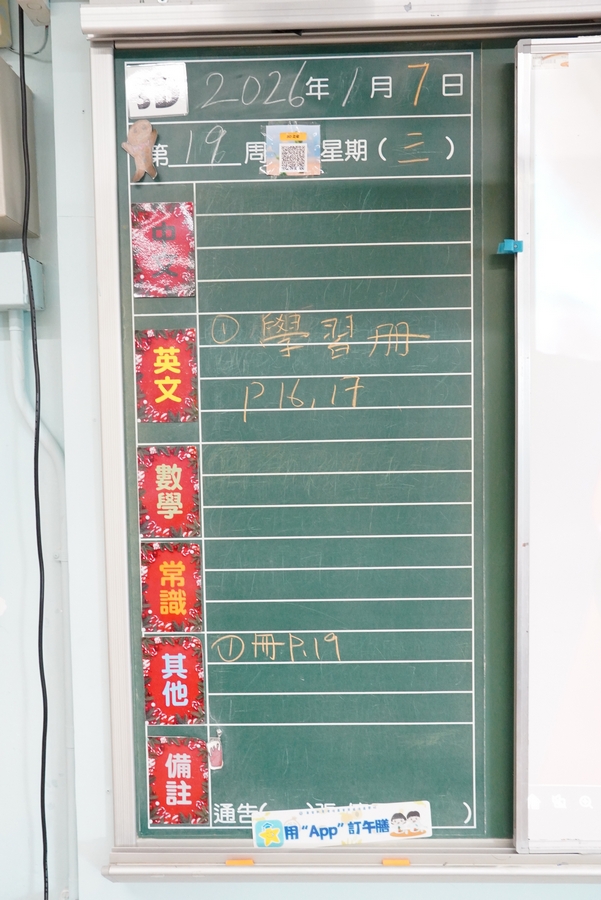 3D 2026年1月7日
第19周 星期(三)
中文
① 學習冊
英文
P16,17
數學
常識
① 冊P.19
其他
備註
通告( )
用“App”訂午膳